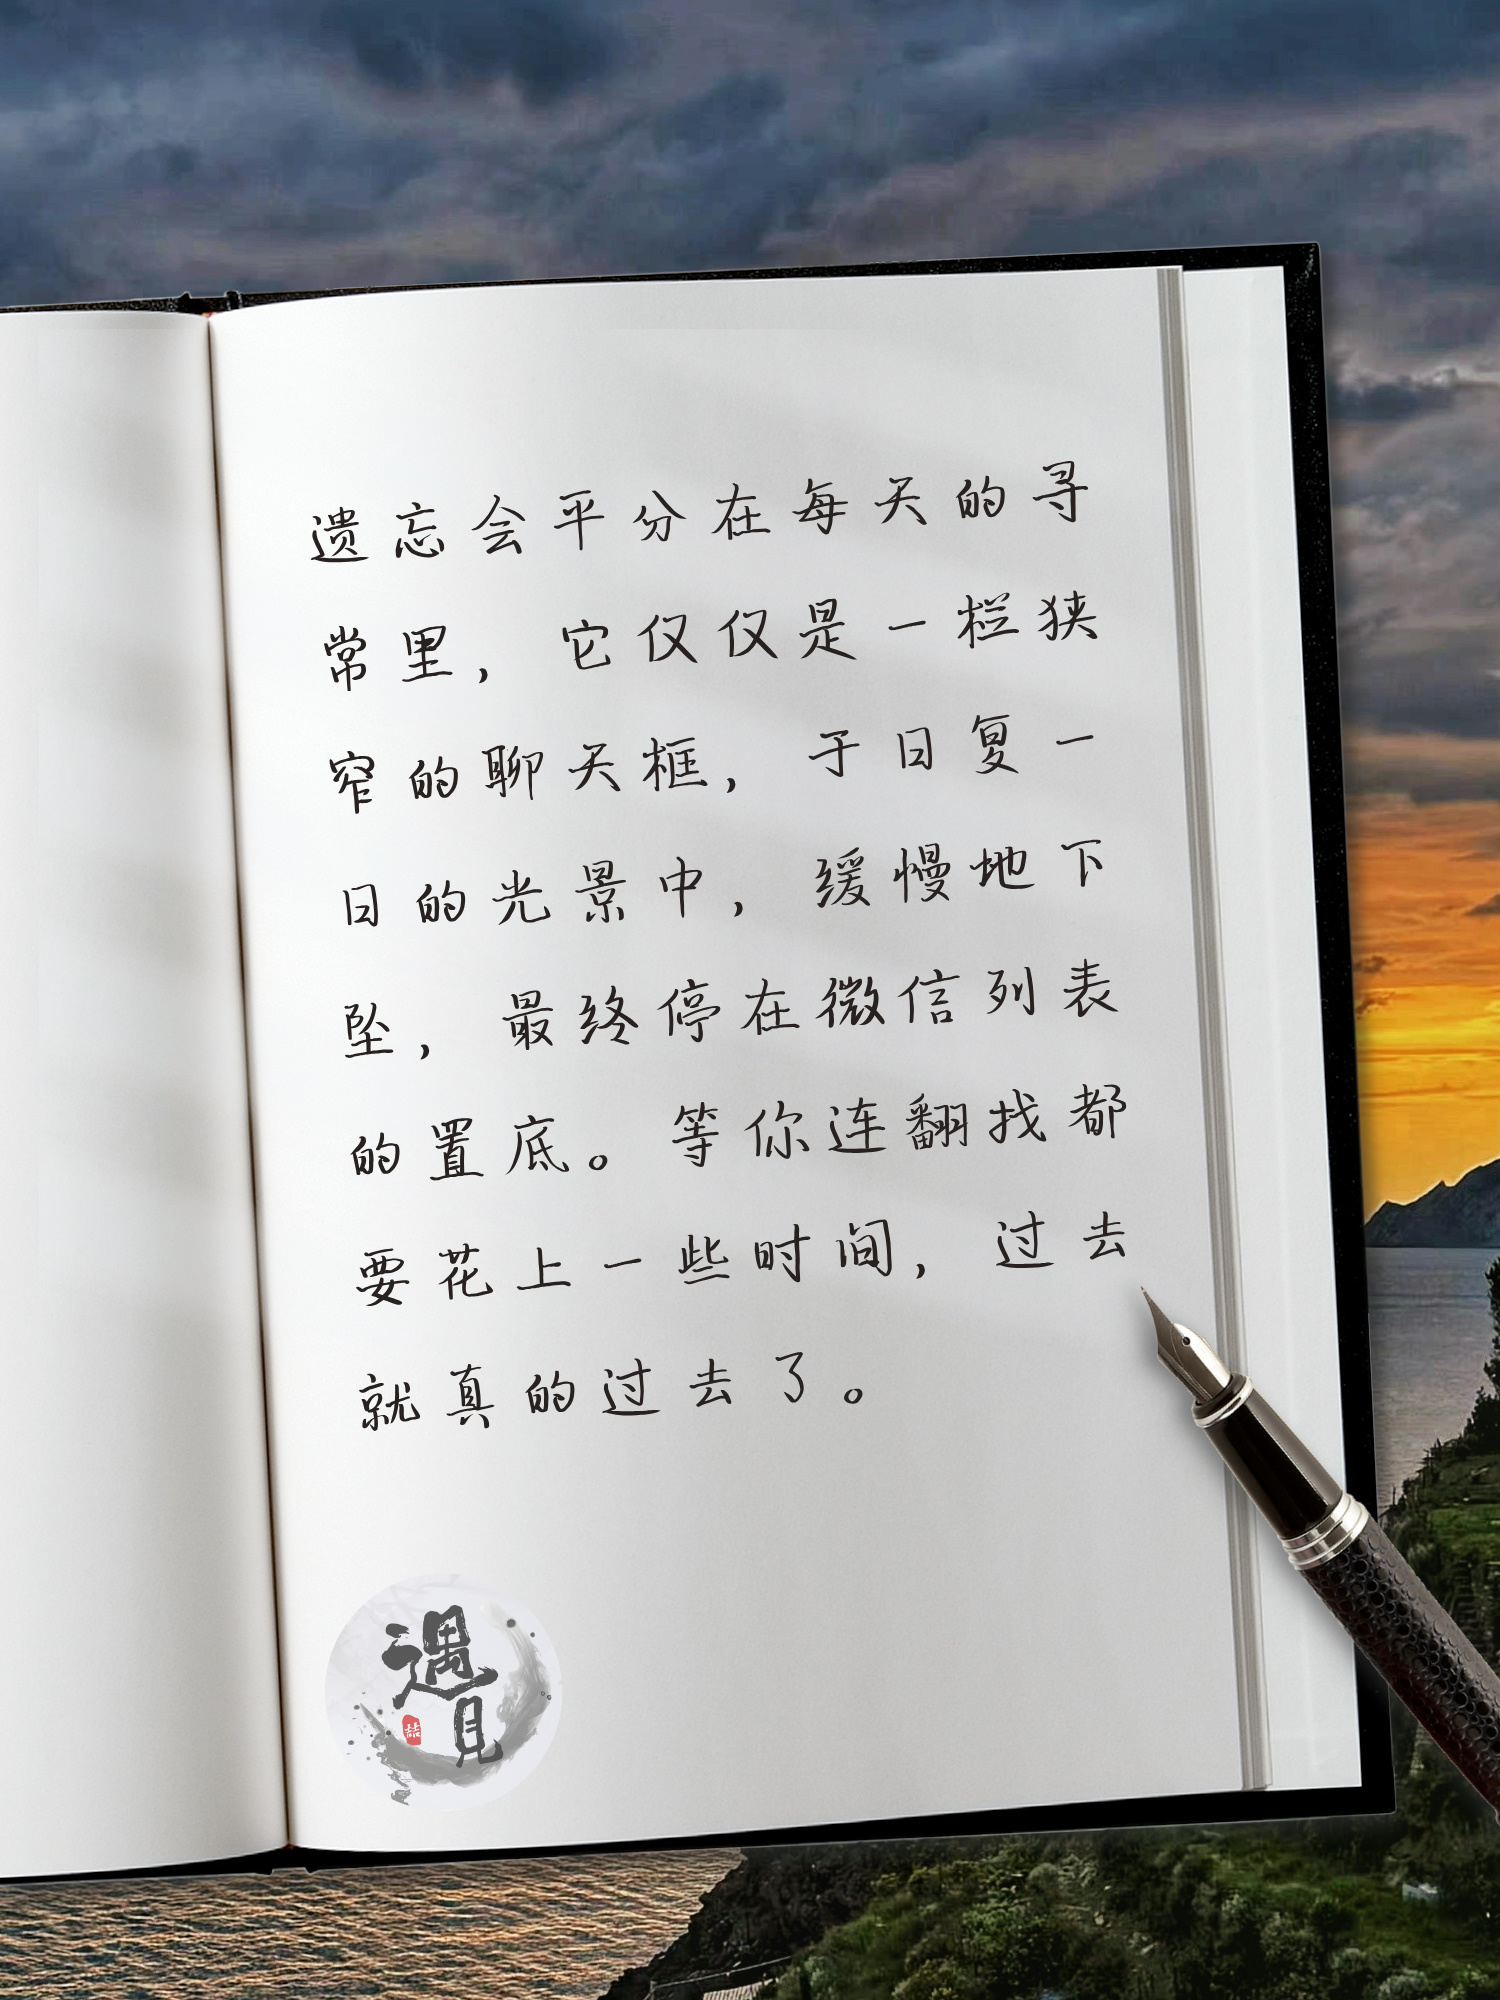 遗忘会平分在每天的寻
常里，它仅仅是一栏狭
窄的聊天框，于日复一
日的光景中，缓慢地下
坠，最终停在微信列表
的置底。等你连翻找都
要花上一些时间，过去
就真的过去了。
遇
见
喆